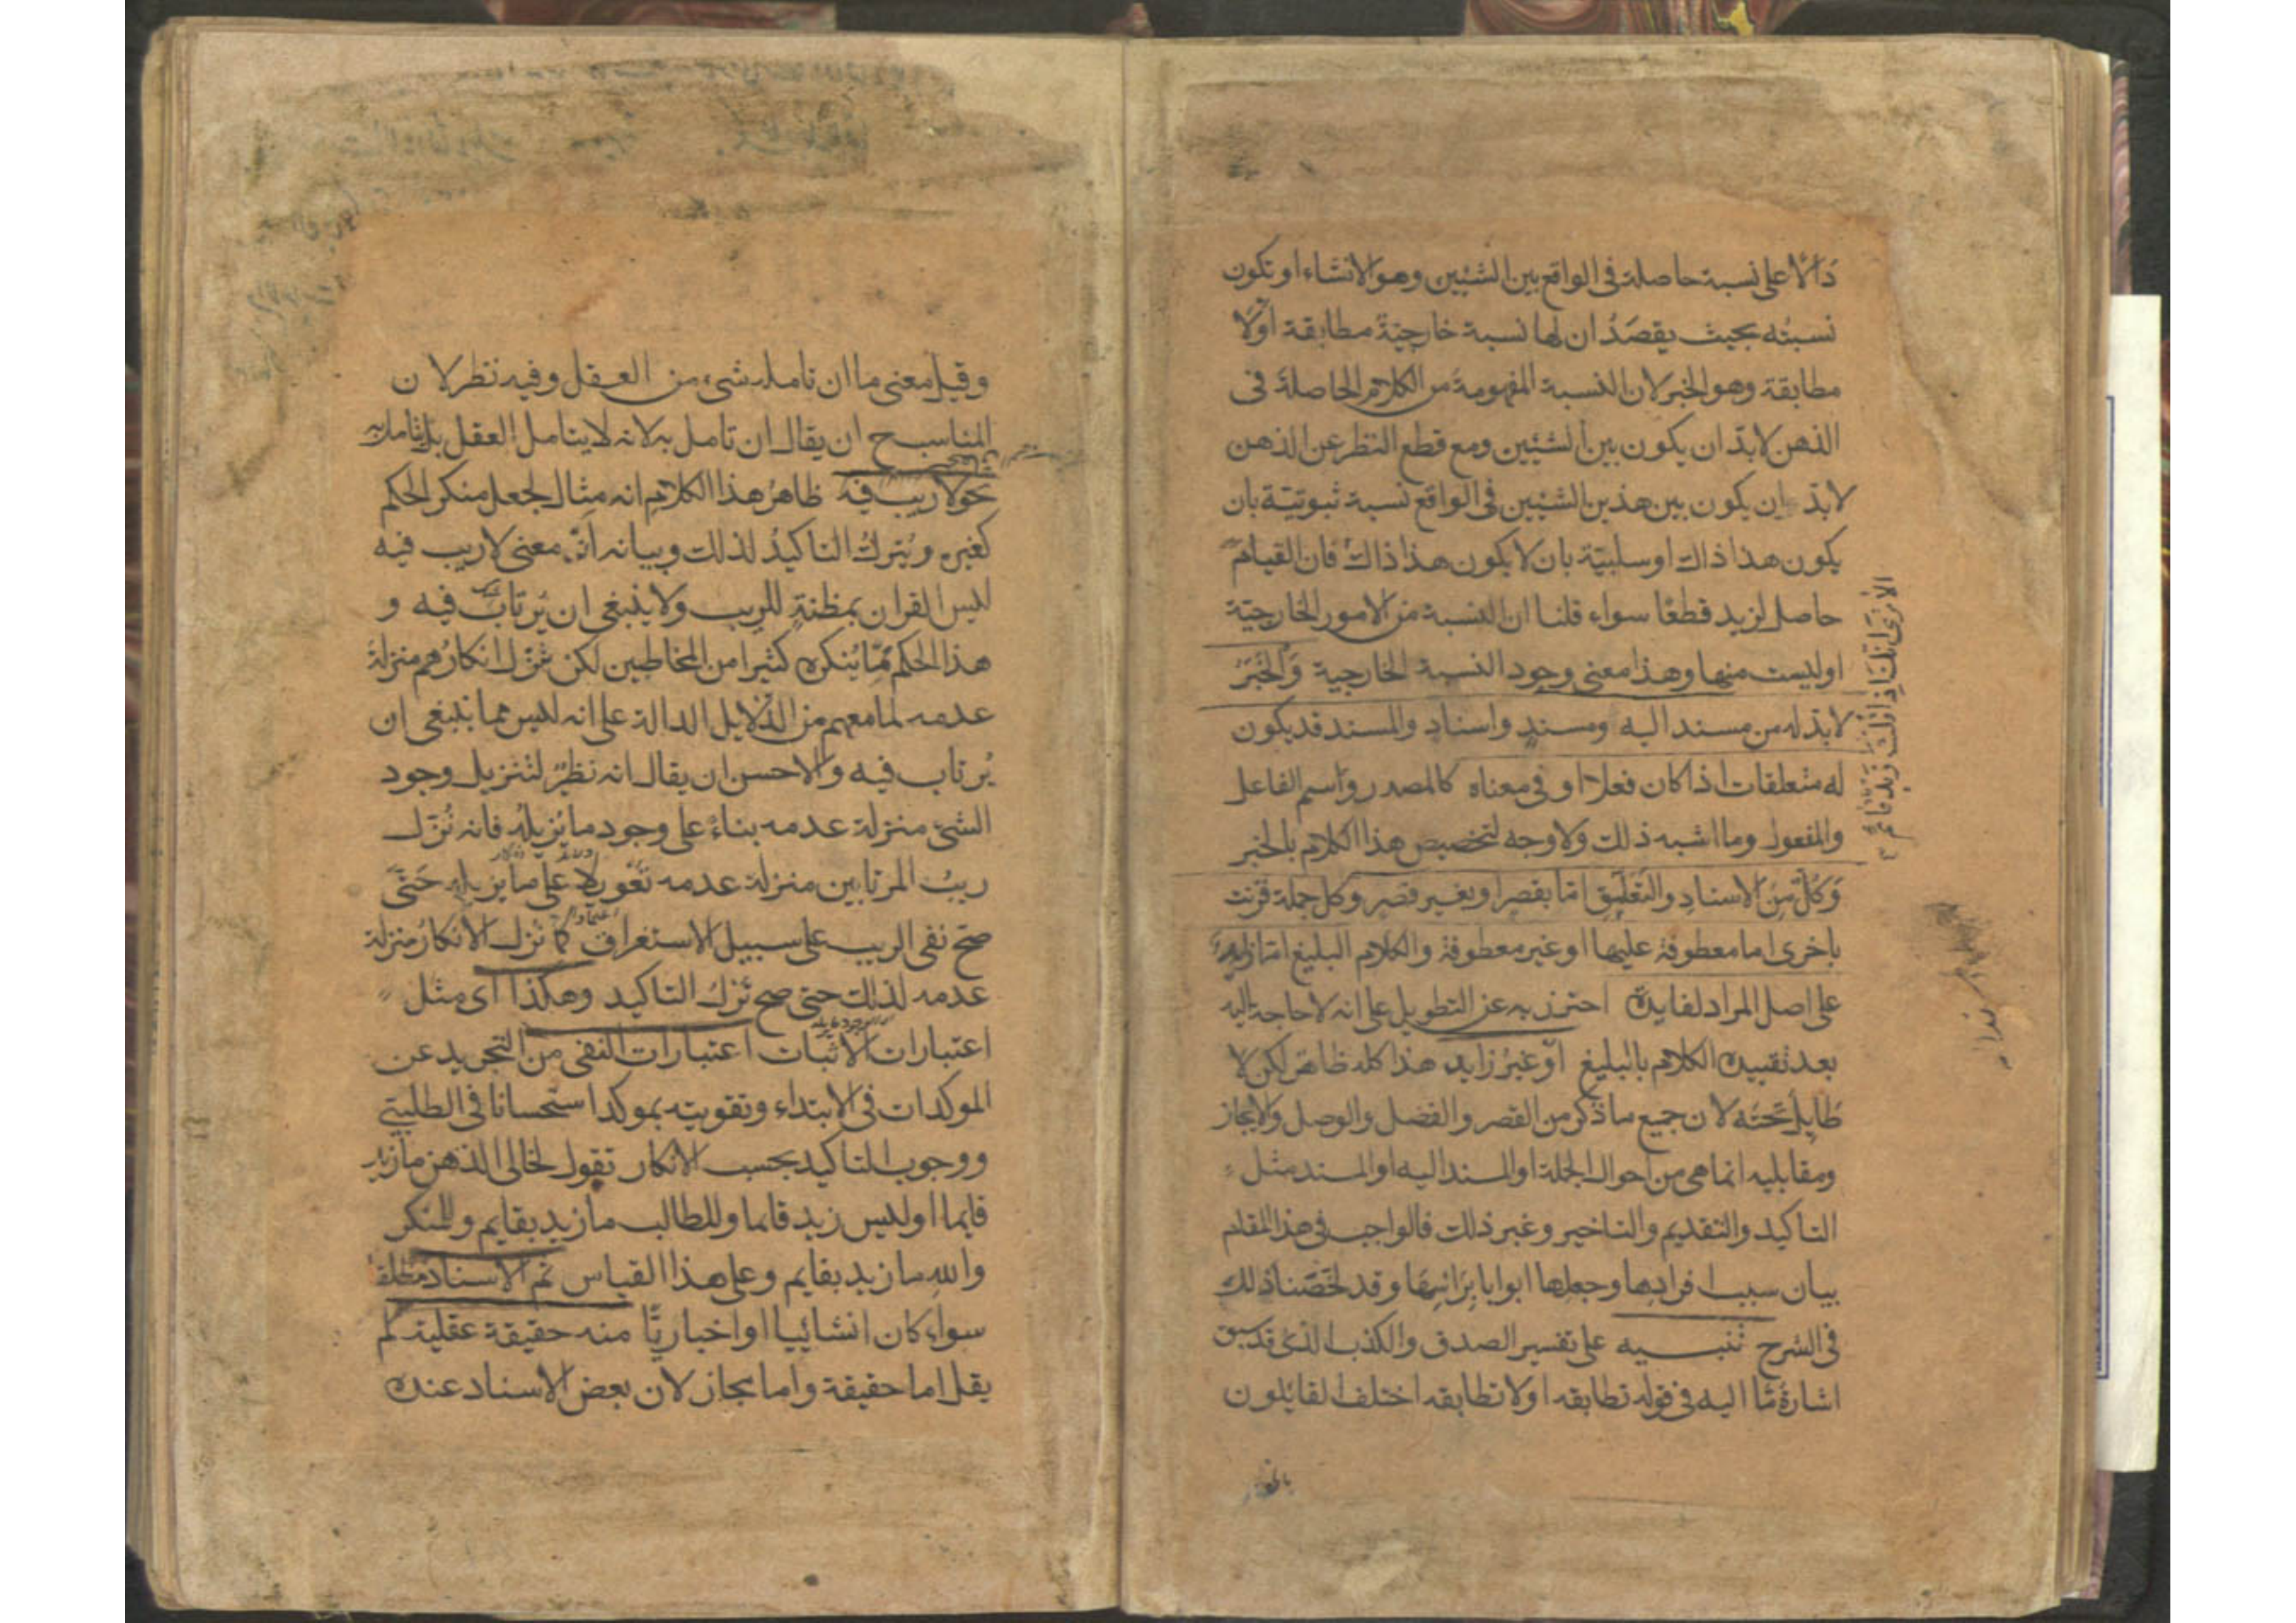 دالا على نسبة حاصلة فى الواقع بين الشيئين وهو الانشاء او تكون
نسبته بحيث يقصد ان لها نسبة خارجية مطابقة اولا
مطابقة وهو الخبر لان النسبة المفهومة من الكلام الحاصلة فى
الذهن لابد ان يكون بين الشيئين ومع قطع النظر عن الذهن
لابد ان يكون بين هذين الشيئين فى الواقع نسبة ثبوتية بان
يكون هذا ذاك او سلبية بان لا يكون هذا ذاك فان القيام
حاصل لزيد قطعا سواء قلنا ان النسبة من الامور الخارجية
اوليست منها وهذا معنى وجود النسبة الخارجية وَالخَبَرُ
لابد له من مسند اليه ومسند واسناد والمسند قد يكون
له متعلقات اذا كان فعلا او فى معناه كالمصدر واسم الفاعل
والمفعول وما اشبه ذلك ولا وجه لتخصيص هذا الكلام بالخبر
وَكُلٌّ مِنَ الاسنادِ والتعلّق امّا بقصر او بغير قصر وكل جملة قرنت
باخرى اما معطوفة عليها او غير معطوفة والكلام البليغ امّا زايد
على اصل المراد لفايدة احترز به عن التطويل على انه لا حاجة اليه
بعد تقييد الكلام بالبليغ او غير زايد هذا كله ظاهر لكن لا
طايل تحته لان جميع ما ذكر من القصر والفصل والوصل والايجاز
ومقابليه انما هى من احوال الجملة او المسند اليه او المسند مثل
التاكيد والتقديم والتاخير وغير ذلك فالواجب فى هذا المقام
بيان سبب افرادها وجعلها ابوابا برائسها وقد لخّصنا ذلك
فى الشرح تنبيه على تفسير الصدق والكذب الذى قد سبق
اشارةٌ مّا اليه فى قوله تطابقه اولا تطابقه اختلف القائلون
الا ترى انك اذا قلت زيد قائم
وقيل معنى ما ان تامله شىء من العقل وفيه نظر لان
المناسب ح ان يقال ان تامل به لانه لا يتامل العقل بل يتامل به
نحو لا ريب فيه ظاهر هذا الكلام انه مثال لجعل منكر الحكم
كغيره ويُترك التاكيدُ لذلك وبيانه انّ معنى لا ريب فيه
ليس القران بمظنةٍ للريب ولا ينبغى ان يُرتاب فيه و
هذا الحكم ممّا يُنكره كثيرا من المخاطبين لكن نُزّل انكارُهم منزلة
عدمه لما معهم من الدلايل الدالة على انه ليس مما ينبغى ان
يُرتاب فيه والاحسن ان يقال انه نظيرٌ لتنزيل وجود
الشئ منزلة عدمه بناءً على وجود ما يُزيله فانه نُزّل
ريبُ المرتابين منزلة عدمه تعويلا على ما يزيله حَتّى
صحّ نفى الريب على سبيل الاستغراق كما نُزل الانكارُ منزلة
عدمه لذلك حتى صح تركُ التاكيد وهكذا اى مثل
اعتبارات الاثبات اعتبارات النفى من التجريد عن
الموكدات فى الابتداء وتقويته بموكد استحسانا فى الطلبىّ
ووجوب التاكيد بحسب الانكار تقول لخالى الذهن ما زيد
قايما اوليس زيد قايما وللطالب ما زيد بقايم وللمنكر
والله ما زيد بقايم وعلى هذا القياس ثم الاسناد مطلقا
سواء كان انشائيا او اخباريّا منه حقيقة عقلية لم
يقل اما حقيقة واما مجاز لان بعض الاسناد عنده